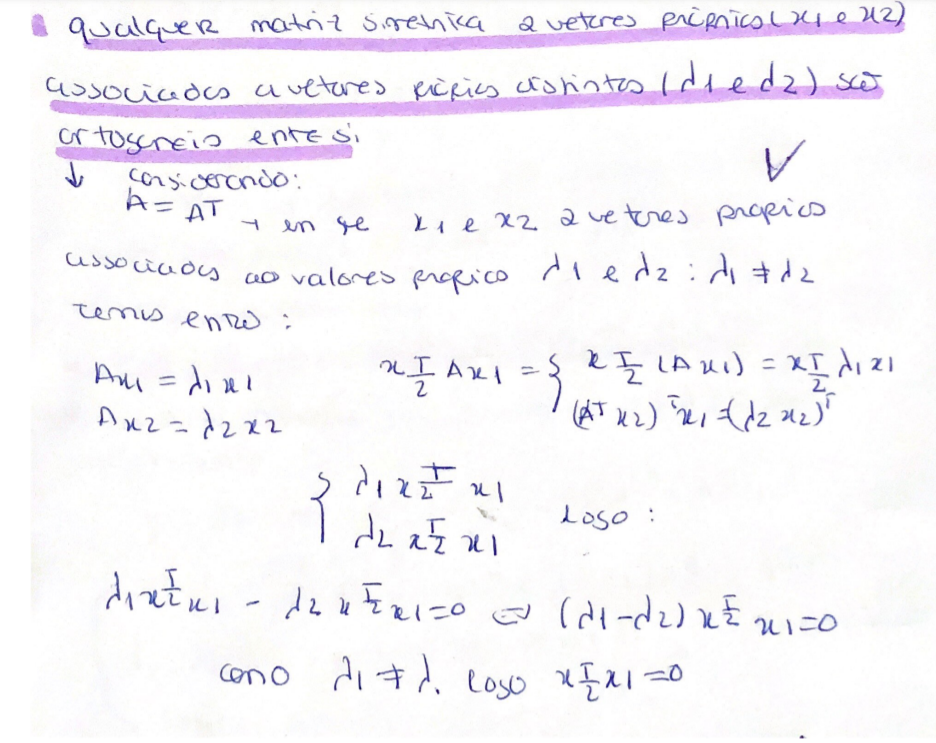 qualquer matriz simétrica 2 vetores próprios (x1 e x2)
associados a vetores próprios distintos (λ1 e λ2) são
ortogonais entre si
↓ considerando:
A = A^T → em que x1 e x2 2 vetores próprios
associados ao valores próprico λ1 e λ2 : λ1 ≠ λ2
temos então :
Ax1 = λ1 x1    x_2^T A x1 = { x_2^T (A x1) = x_2^T λ1 x1
Ax2 = λ2 x2    (A^T x2)^T x1 = (λ2 x2)^T
{ λ1 x_2^T x1
λ2 x_2^T x1    Logo :
λ1 x_2^T x1 - λ2 x_2^T x1 = 0 ⇔ (λ1 - λ2) x_2^T x1 = 0
como λ1 ≠ λ. logo x_2^T x1 = 0